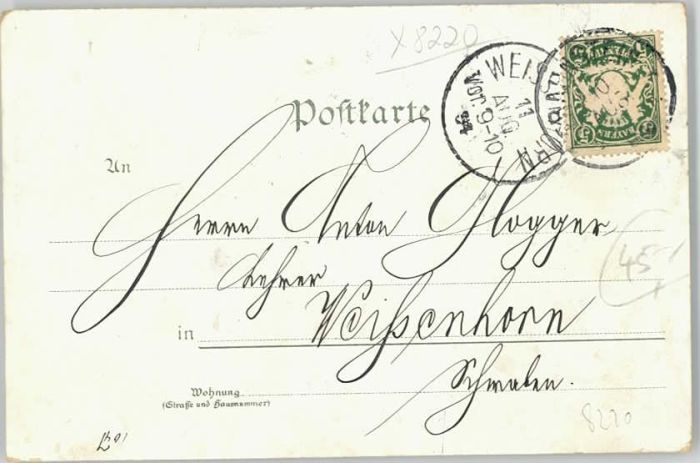 X8220
WEISSENHORN
11
AUG.
Vor. 9-10
BAYERN
Postkarte
An
Herrn Anton Glogger
Lehrer
45
in Weißenhorn
Schwaben.
Wohnung
(Straße und Hausnummer)
8220